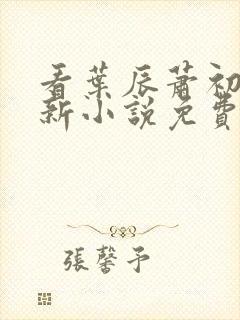 看葉辰蕭初
新小說免費
張馨予